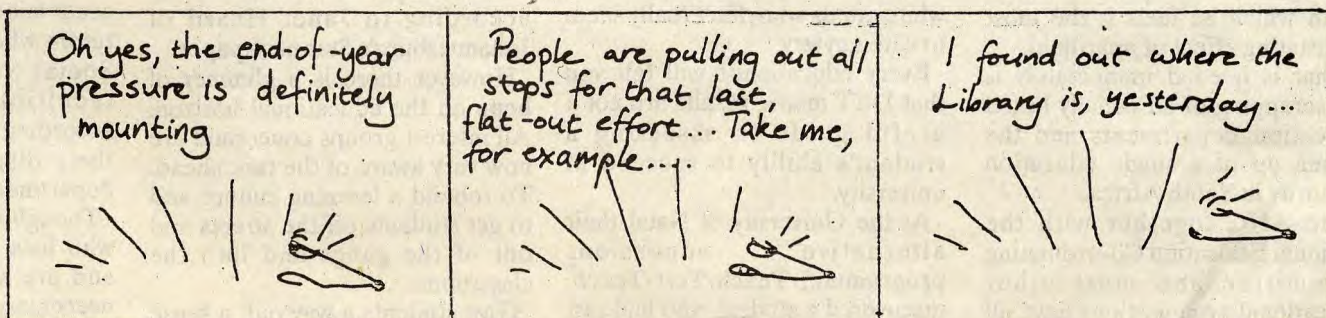 Oh yes, the end-of-year
pressure is definitely
mounting
People are pulling out all
stops for that last,
flat-out effort... Take me,
for example...
I found out where the
Library is, yesterday...